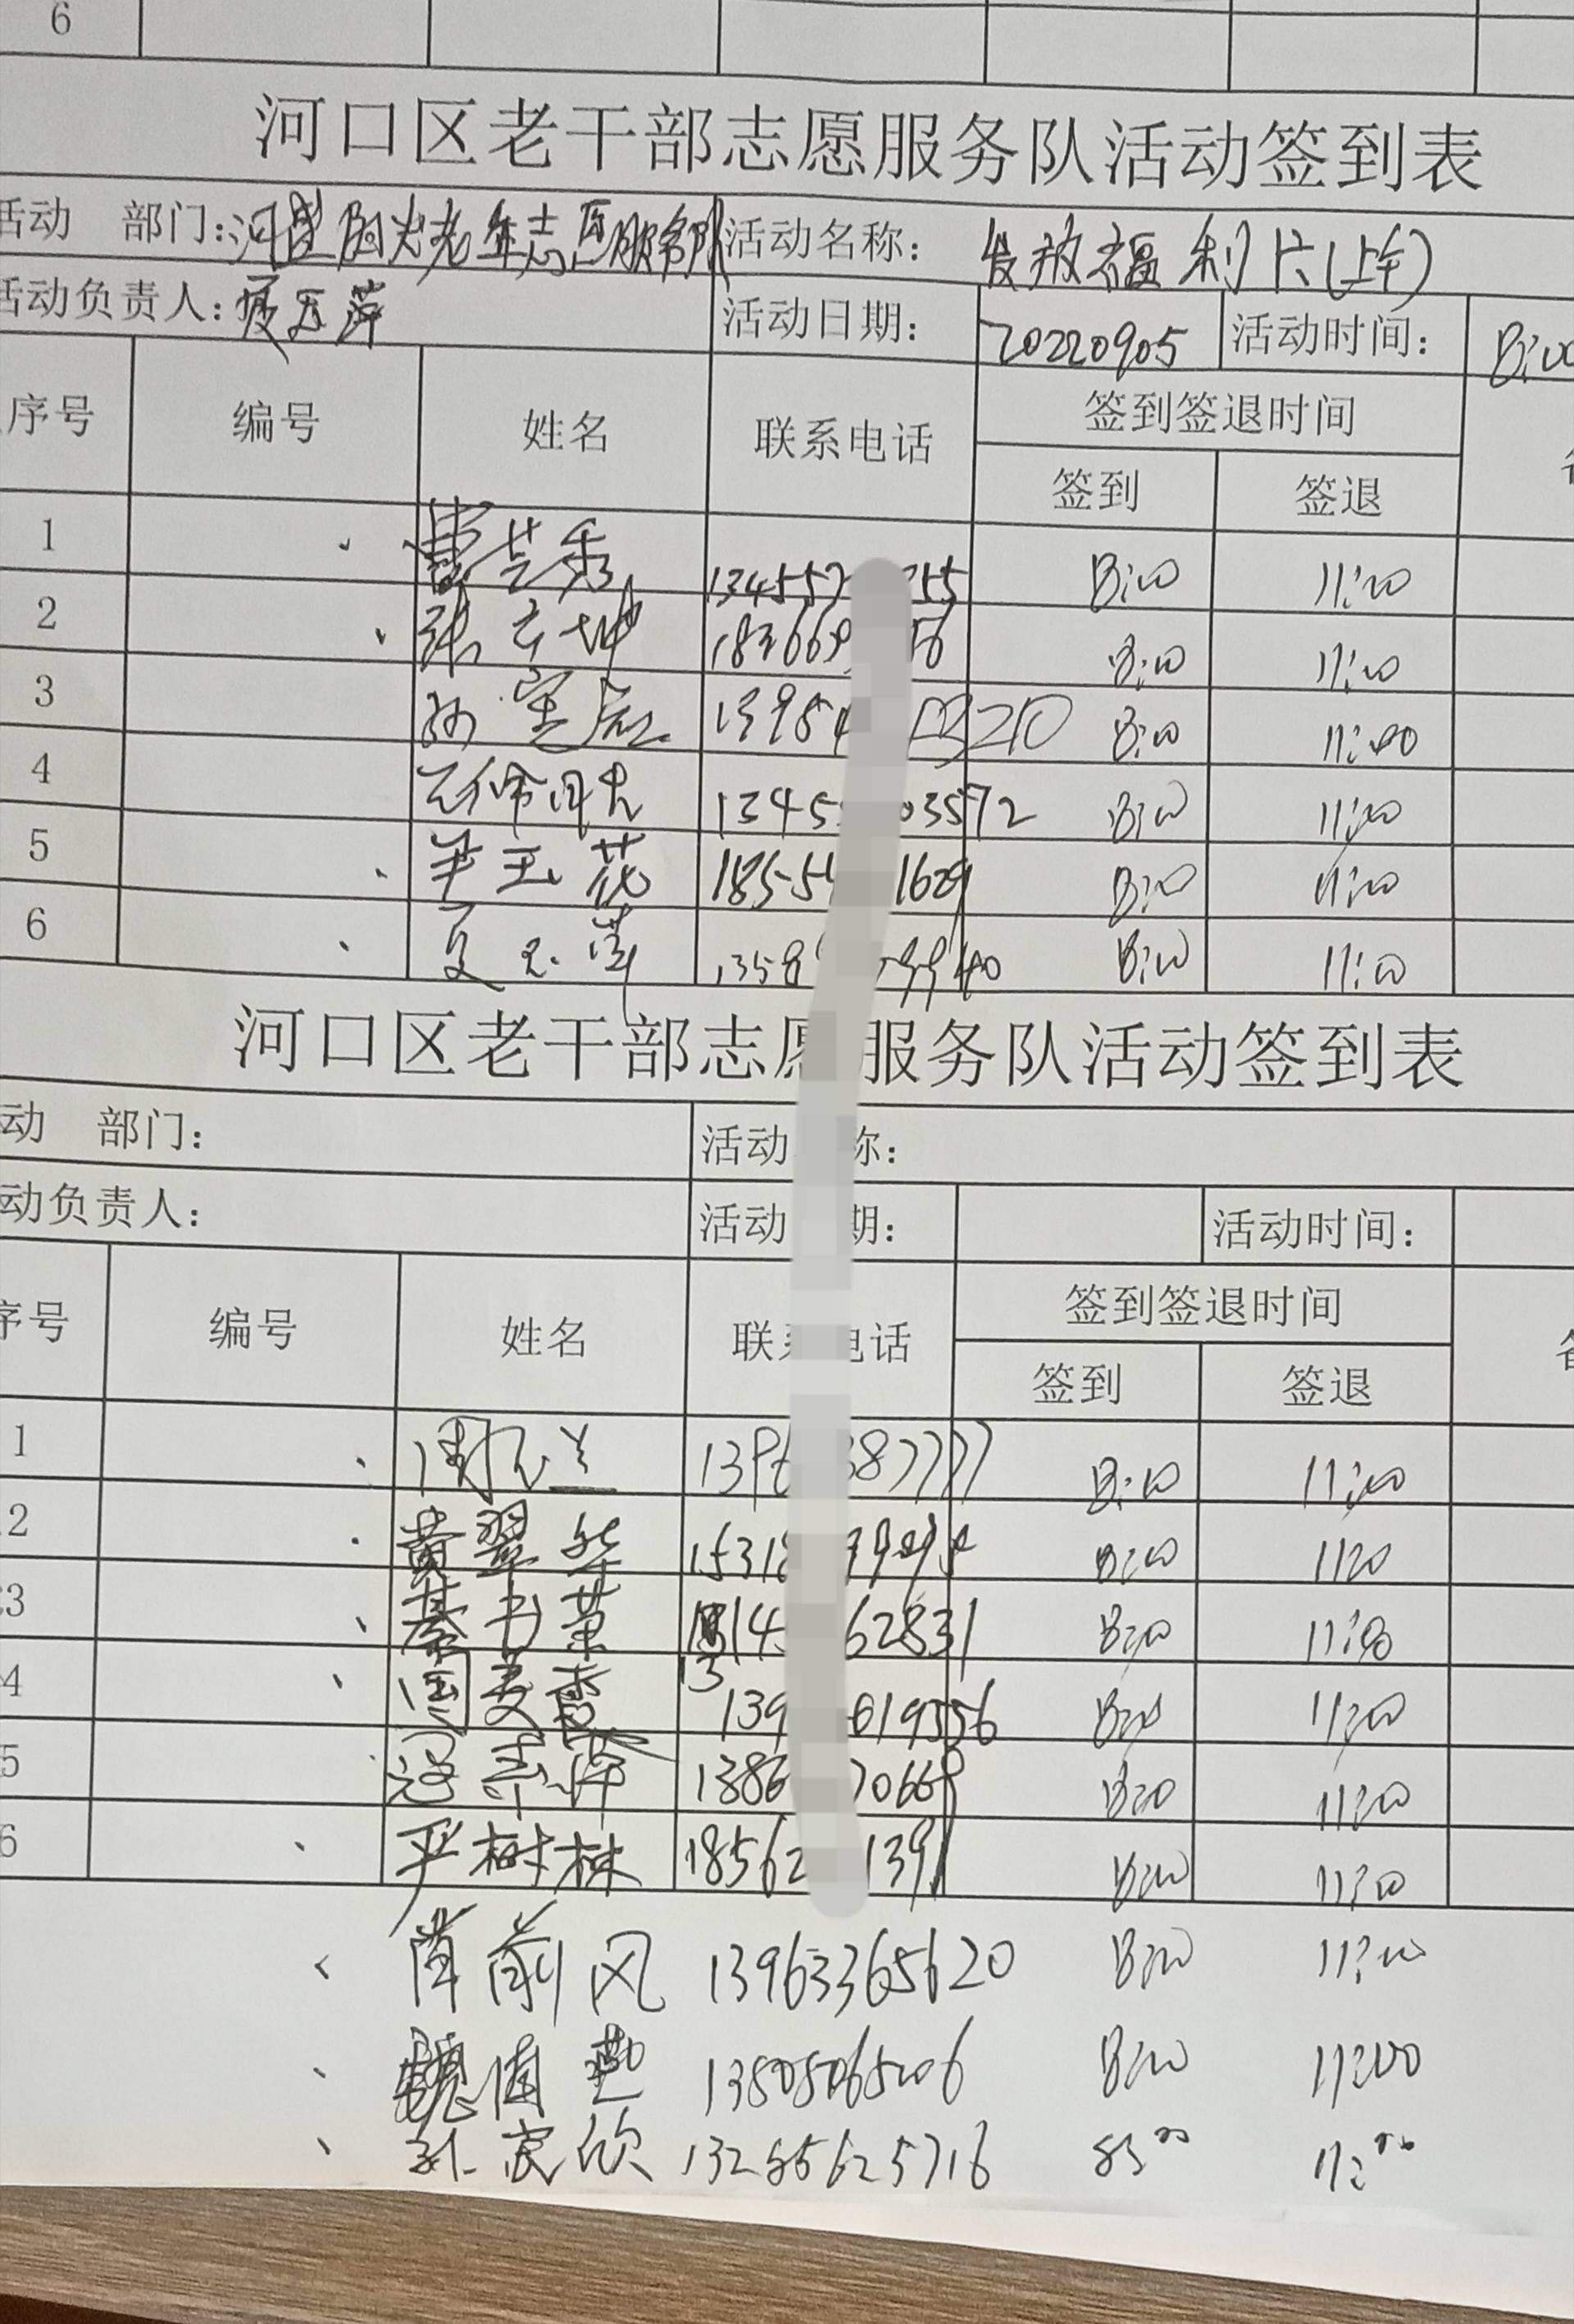 6
河口区老干部志愿服务队活动签到表
活动 部门: 老年志愿服务队 活动名称: 发放福利片(上午)
活动负责人: 夏玉萍 活动日期: 20220905 活动时间: 8:00
序号 编号 姓名 联系电话 签到签退时间
签到 签退
1 曹芸秀 134557 255 8:00 11:00
2 张云坤 183669 56 8:00 11:00
3 孙宝 13954 320 8:00 11:00
4 1345 03572 8:00 11:00
5 尹玉花 1855 1629 8:00 11:00
6 夏玉萍 1358 9940 8:00 11:00
河口区老干部志愿服务队活动签到表
动 部门:
活动 称:
动负责人:
活动 期: 活动时间:
序号 编号 姓名 联系电话 签到签退时间
签到 签退 备
1 周 兰 139 387777 8:00 11:00
2 黄翠华 15318 8:00 1120
3 綦书荣 14 62831 8:00 11:00
13
4 国美香 139 619556 8:00 11:00
5 寇 萍 1386 70669 8:00 11:00
6 严树林 18562 1391 8:00 11:00
前风 13963365620 8:00 11:00
魏 13505065206 8:00 11:00
欣 13255625716 8:00 11:00